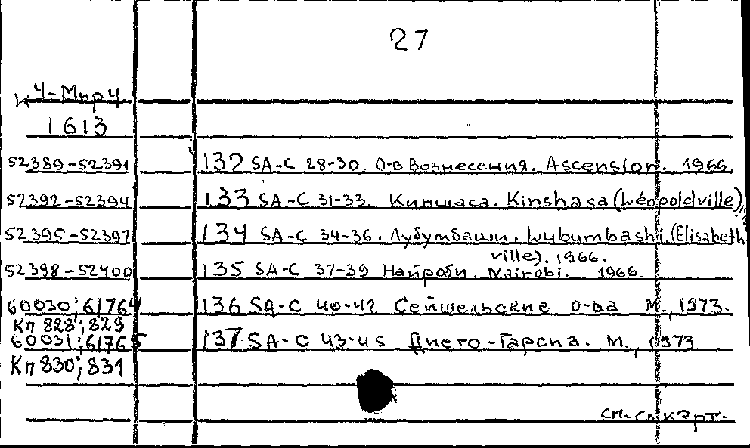 27
4-Мир 4
1613
52389-52391 132 SA-C 28-30. О-в Вознесения. Ascension. 1966.
52392-52394 133 SA-C 31-33. Киншаса. Kinshasa (Léopoldville),
52395-52397 134 SA-C 34-36. Лубумбаши. Lubumbashi. (Elisabeth
ville). 1966.
52398-52400 135 SA-C 37-39 Найроби. Nairobi. 1966.
60030; 61764 136 SA-C 40-42 Сейшельские о-ва М., 1973.
Кп 828; 829
60031; 61765 137 SA-C 43-45 Диего-Гарсиа. М., 1973
Кп 830; 831
см. след. карт.